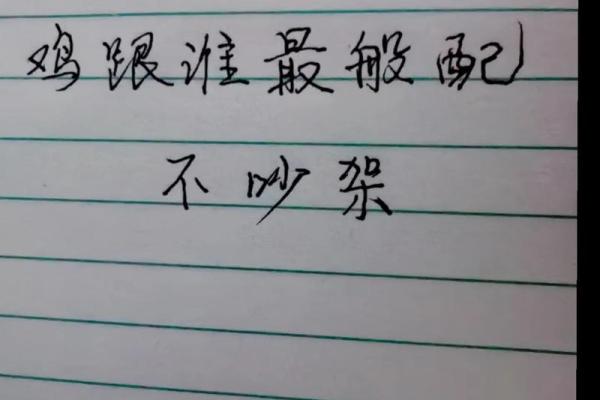 鸡跟谁最般配
不吵架